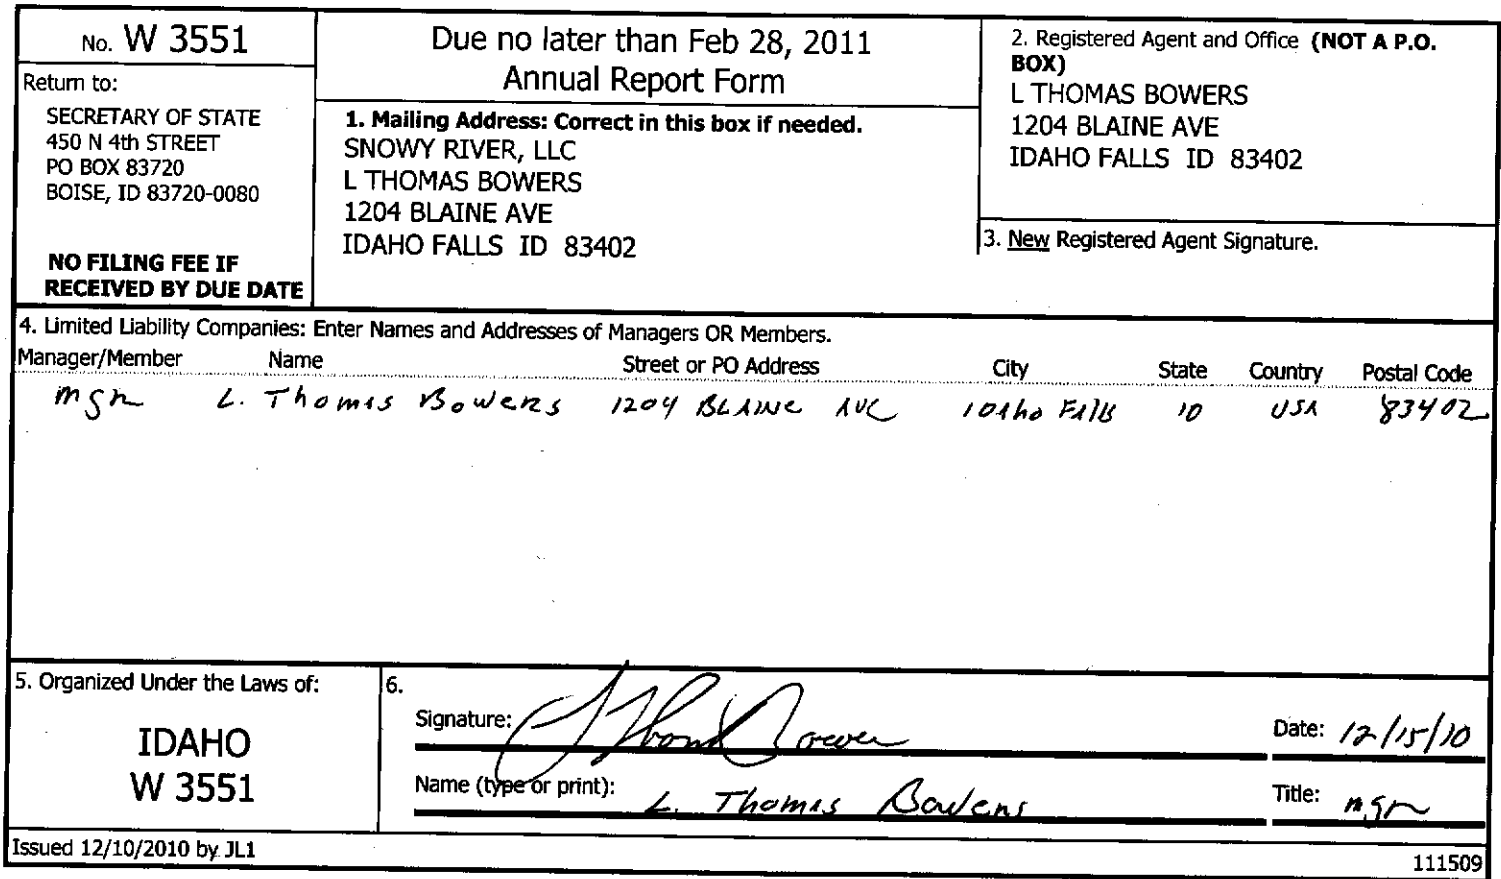 No. W 3551
Return to:
SECRETARY OF STATE
450 N 4th STREET
PO BOX 83720
BOISE, ID 83720-0080
NO FILING FEE IF
RECEIVED BY DUE DATE
Due no later than Feb 28, 2011
Annual Report Form
1. Mailing Address: Correct in this box if needed.
SNOWY RIVER, LLC
L THOMAS BOWERS
1204 BLAINE AVE
IDAHO FALLS ID 83402
2. Registered Agent and Office (NOT A P.O.
BOX)
L THOMAS BOWERS
1204 BLAINE AVE
IDAHO FALLS ID 83402
3. New Registered Agent Signature.
4. Limited Liability Companies: Enter Names and Addresses of Managers OR Members.
Manager/Member Name Street or PO Address City State Country Postal Code
mgr L. Thomas Bowers 1204 BLAINE AVE Idaho Falls ID USA 83402
5. Organized Under the Laws of:
IDAHO
W 3551
6.
Signature: L Thomas Bowers Date: 12/15/10
Name (type or print): L. Thomas Bowers Title: mgr
Issued 12/10/2010 by JL1
111509